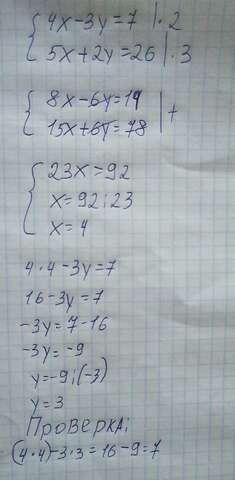 4x-3y=7 |·2
5x+2y=26 |·3
8x-6y=14
15x+6y=78 |+
23x=92
x=92:23
x=4
4·4-3y=7
16-3y=7
-3y=7-16
-3y=-9
y=-9:(-3)
y=3
Проверка:
(4·4)-3·3=16-9=7